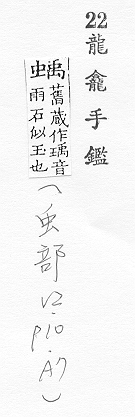 22龍龕手鑑
禹舊蔵作瑀音
䖝雨石似玉也
(虫部 V2.P10.A7)